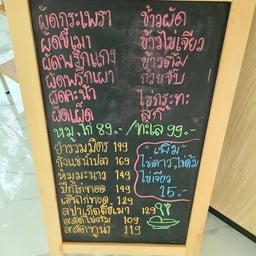 ผัดกระเพรา
ผัดขี้เมา
ผัดพริกแกง
ผัดพริกเผา
ผัดคะน้า
ผัดเผ็ด
ข้าวผัด
ข้าวไข่เจียว
ข้าวต้ม
ก๋วยจั๊บ
ไข่กระทะ
สุกี้
หมู,ไก่ 89.-/ทะเล 99.-
ยำรวมมิตร 149
กุ้งแช่น้ำปลา 169
หมูมะนาว 149
ปีกไก่ทอด 149
เอ็นไก่ทอด 129
สปาเก็ตตี้ขี้เมา 129
สลัดไข่ต้ม 109
สลัดทูน่า 119
"เพิ่ม"
ไข่ดาว,ไข่ต้ม
ไข่เจียว
15.-